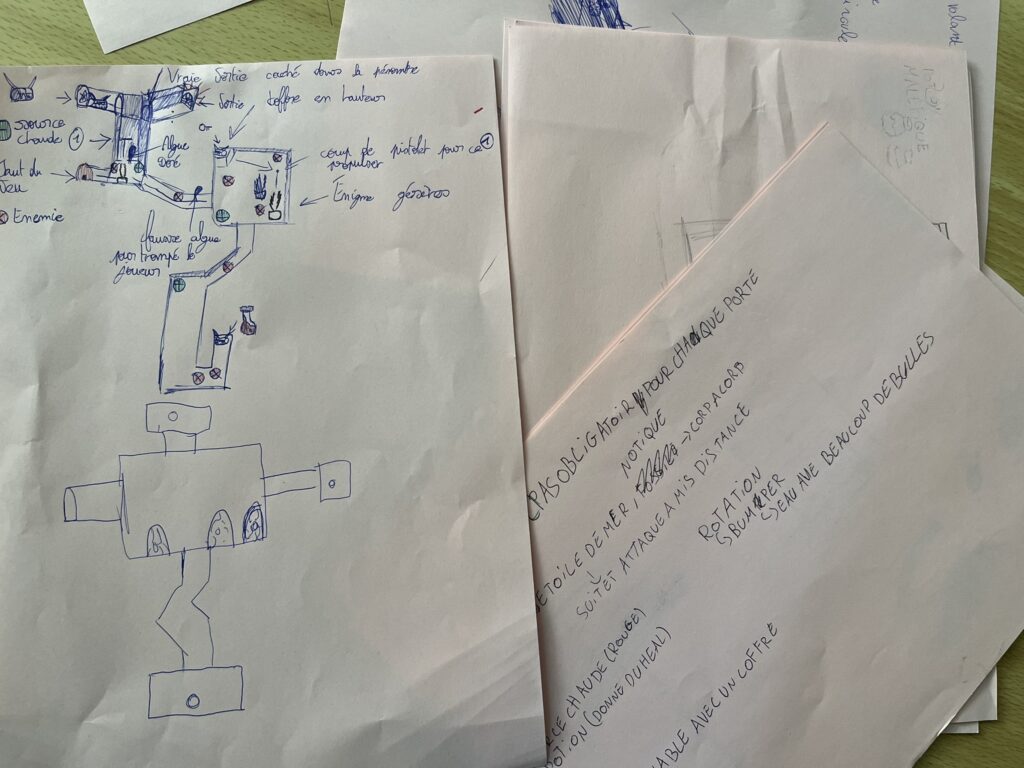 Vraie Sortie caché dans la pénombre
Sortie Coffre en hauteur
Source
chaude ①
Algue
Doré
Or
coup de pistolet pour ce ①
propulser
Énigme géséros
Enemie
fausse algue
pour trompé le
joueur
volante
PAS OBLIGATOIR POUR CHAQUE PORTE
NOTIQUE
ETOILE DE MER, → CORP A CORP
SUIT ET ATTAQUE A MIS DISTANCE
ROTATION
↳ BUMPER
↳ EAU AVE BEAUCOUP DE BULLES
CE CHAUDE (ROUGE)
POTION (DONNE DU HEAL)
ABLE AVEC UN COFFRE